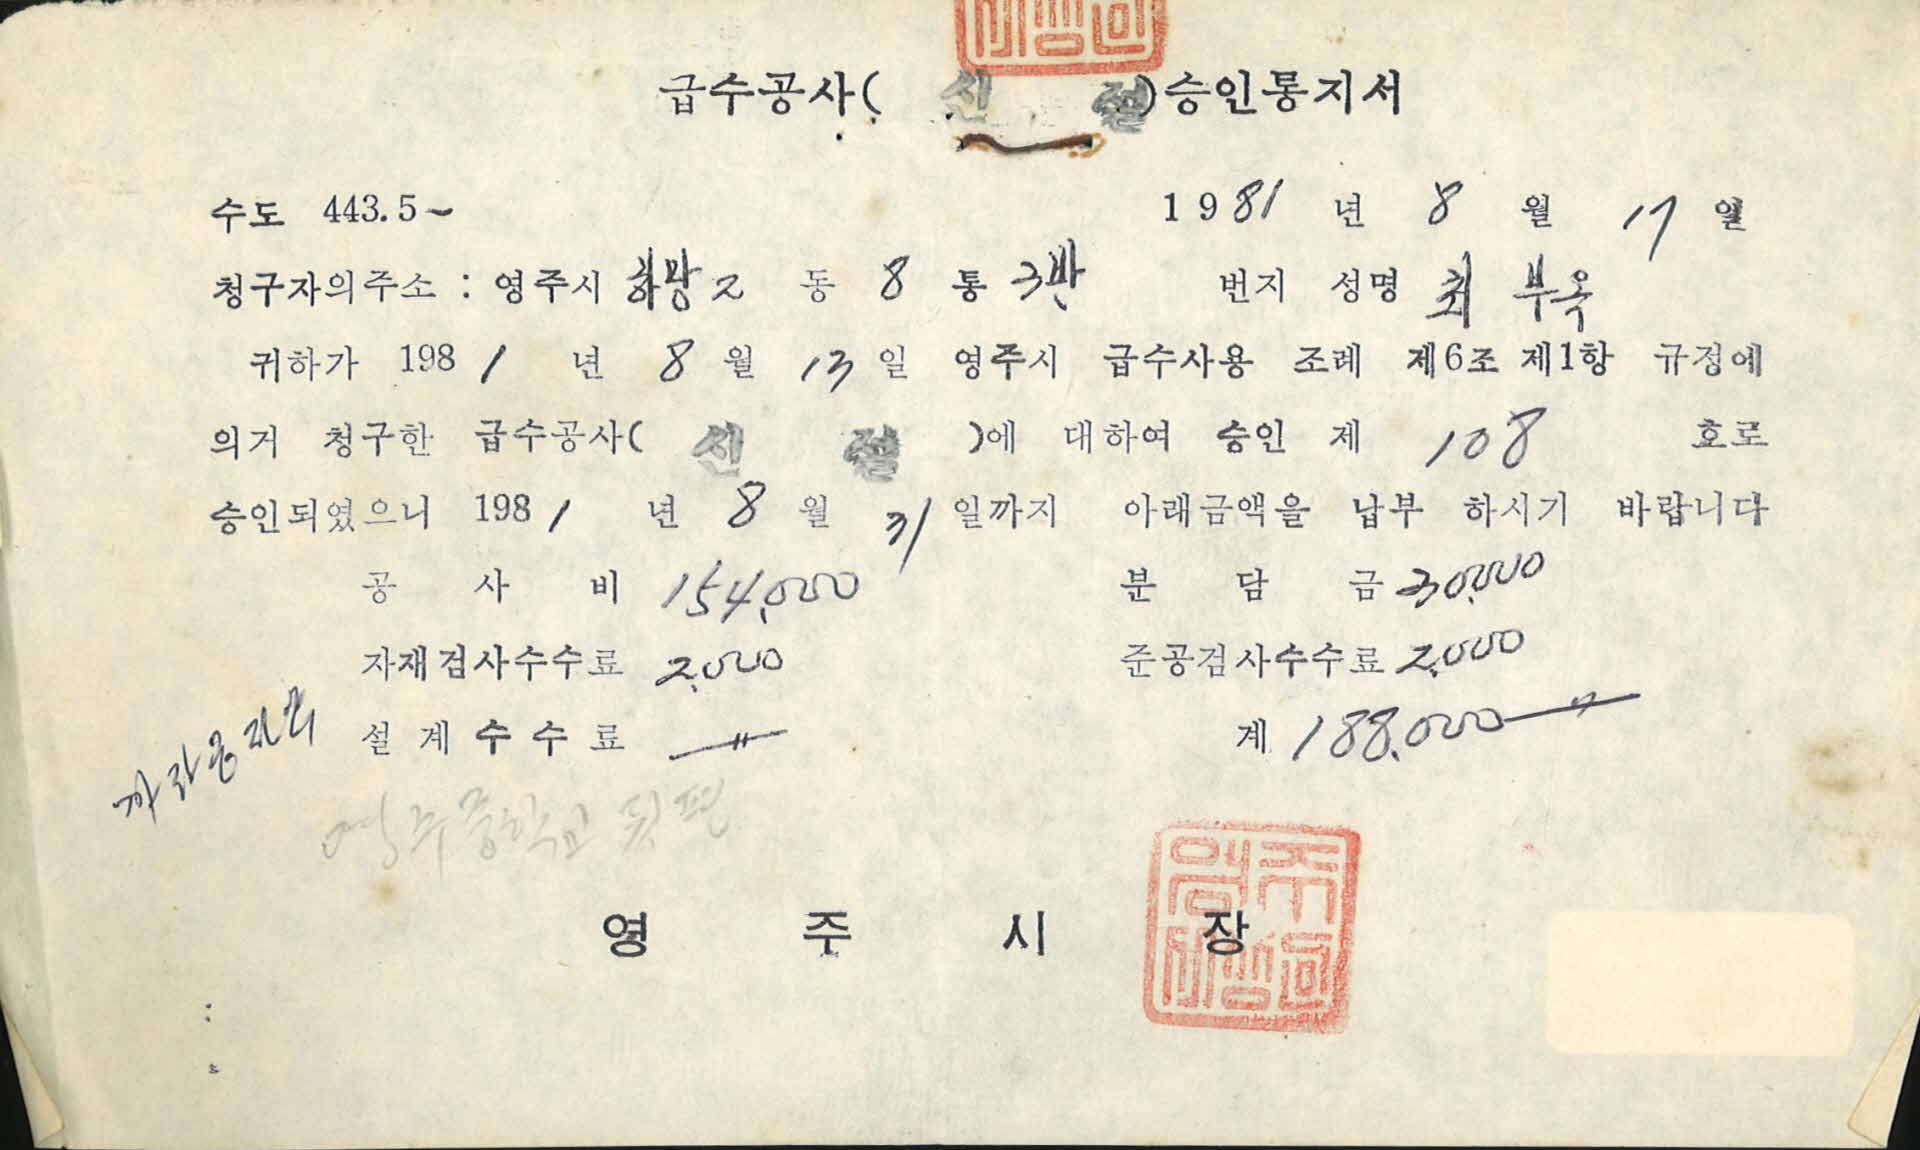 급수공사( 신 설 )승인통지서
수도 443.5~ 1981 년 8 월 17 일
청구자의주소 : 영주시 하망2 동 8 통 3반 번지 성명 최 부옥
귀하가 1981 년 8 월 13 일 영주시 급수사용 조례 제6조 제1항 규정에
의거 청구한 급수공사( 신 설 )에 대하여 승인 제 108 호로
승인되였으니 1981 년 8 월 31 일까지 아래금액을 납부 하시기 바랍니다
공 사 비 154,000 분 담 금 30,000
자재검사수수료 2,000 준공검사수수료 2,000
설계수수료 〃 계 188,000
영주중학교 뒷편
영 주 시 장